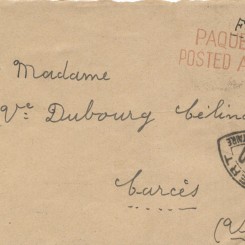 F
PAQUE
POSTED A
Madame
Vᵉ Dubourg Céline
Carcès